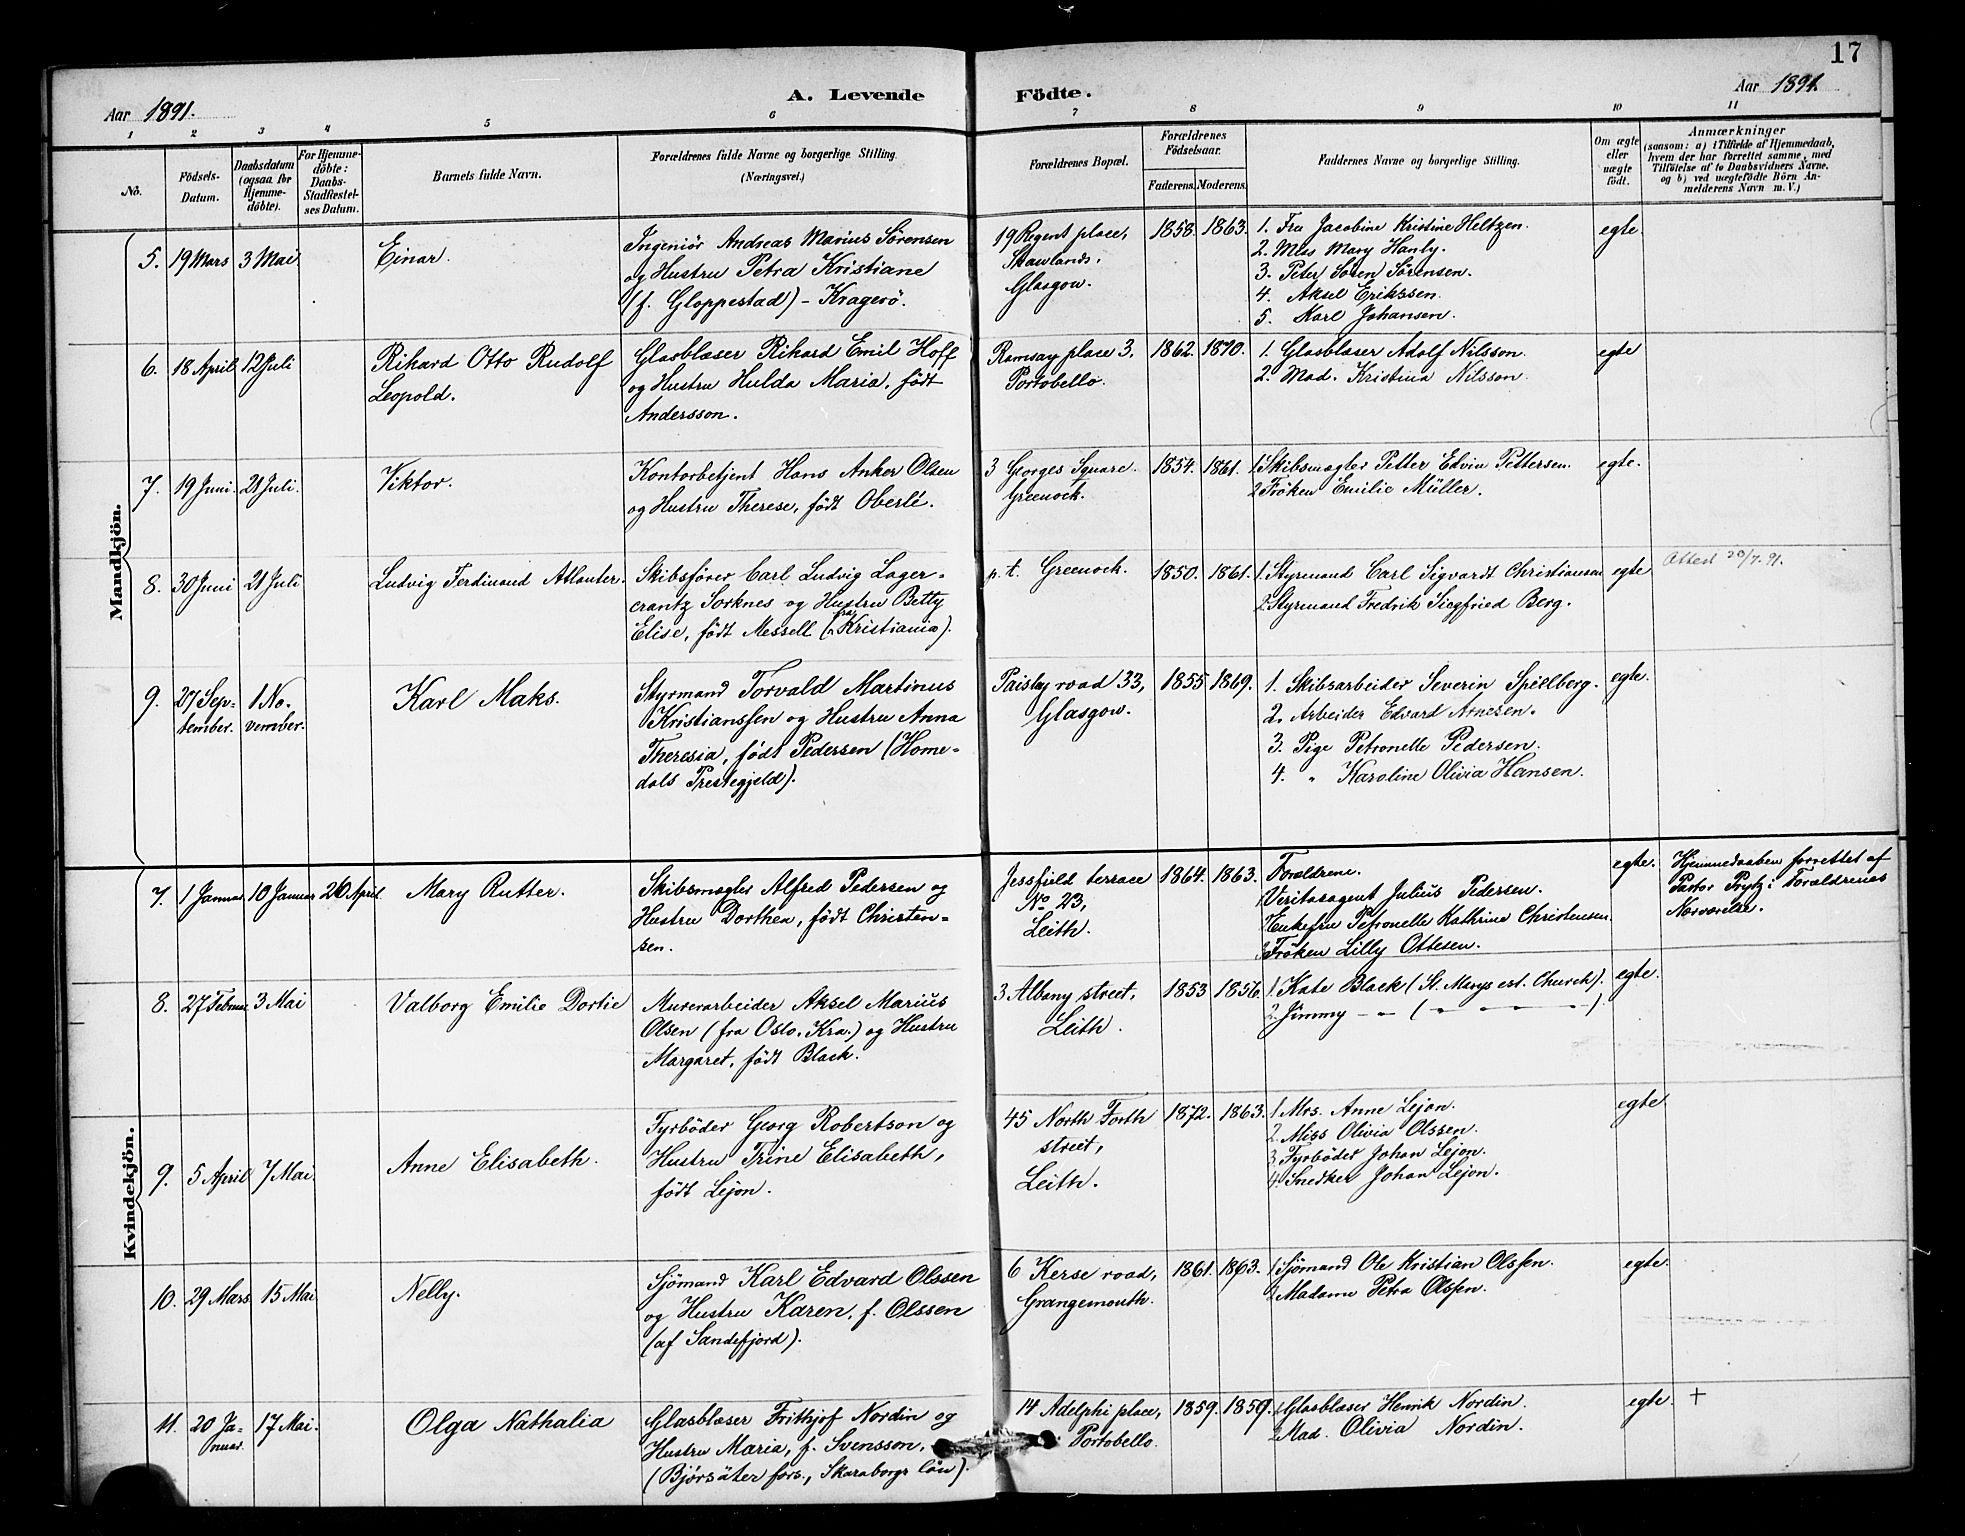 17
Aar 1891.
A. Levende Födte.
Aar 1891.
1 2 3 4 5 6 7 8 9 10 11
No.
Födsels-
Datum.
Daabsdatum
(ogsaa for
Hjemme-
döbte).
For Hjemme-
döbte:
Daabs-
Stadfæstel-
ses Datum.
Barnets fulde Navn.
Forældrenes fulde Navne og borgerlige Stilling
(Næringsvei.)
Forældrenes Bopæl.
Forældrenes
Födselsaar.
Faderens.
Moderens.
Faddernes Navne og borgerlige Stilling.
Om ægte
eller
uægte
födt.
Anmærkninger
(saasom: a) i Tilfælde af Hjemmedaab,
hvem der har forrettet samme, med
Tilföielse af to Daabsvidners Navne.
og b) ved uægtefödte Börn An-
melderens Navn m.V.)
Mandkjön.
5. 19 Mars 3 Mai
Einar.
Ingeniör Andreas Marius Sörensen
og Hustru Petra Kristiane
(f. Gloppestad) - Kragerö.
19 Regent place,
Shawlands,
Glasgow.
1858. 1863.
1. Fru Jacobine Kristine Heltzen.
2. Miss Mary Hanly.
3. Peter Sören Sörensen.
4. Aksel Erikssen.
5. Karl Johansen.
egte.
6. 18 April 12 Juli
Rikard Otto Rudolf
Leopold.
Glasblæser Rikard Emil Hoff
og Hustru Hulda Maria, födt
Andersson.
Ramsay place 3,
Portobello.
1862. 1870.
1. Glasblæser Adolf Nilsson.
2. Mad. Kristina Nilsson.
egte
7. 19 Juni. 21 Juli.
Viktor.
Kontorbetjent Hans Anker Olsen
og Hustru Therese, födt Oberlé.
3 Georges Square.
Greenock.
1854. 1861.
1. Skibsmægler Petter Edvin Pettersen.
2. Fröken Emilie Müller.
egte.
8. 30 Juni 21 Juli
Ludvig Ferdinand Atlanter.
Skibsförer Carl Ludvig Lager-
crantz Sorknes og Hustru Betty
Elise, födt Messell (fra Kristiania).
p. t. Greenock.
1850. 1861.
1. Styrmand Carl Sigvardt Christiansen
2. Styrmand Fredrik Siegfried Berg.
egte
Attest 20/7. 91.
9. 27 Sep-
tember.
1 No-
vember.
Karl Maks.
Styrmand Torvald Martinus
Kristianssen og Hustru Anna
Theresia, födt Pedersen (Home-
dals Prestegjeld).
Paisley road 33,
Glasgow.
1855 1869.
1. Skibsarbeider Severin Spellberg.
2. Arbeider Edvard Arnesen.
3. Pige Petronelle Pedersen.
4. " Karoline Olivia Hansen.
egte.
Kvindekjön.
7. 1 Januar 10 Januar 26 April
Mary Rutter.
Skibsmægler Alfred Pedersen og
Hustru Dorthea, födt Christen-
sen.
Jessfield terrace
No 23,
Leith.
1864. 1863.
Forældrene.
1. Veritasagent Julius Pedersen.
Enkefru Petronelle Kathrine Christensen.
3. Fröken Lilly Ottesen.
egte.
Hjemmedaaben forrettet af
Pastor Prytz i Forældrenes
Nærværelse.
8. 27 Februar 3 Mai
Valborg Emilie Dortie
Murerarbeider Aksel Marius
Olsen (fra Oslo. Kra.) og Hustru
Margaret, födt Black.
3 Albany street,
Leith.
1853 1856.
1. Kate Black (St. Marys est. Church).
2. Jimmy - " - ( " - " - " - )
egte.
9. 5 April 7 Mai.
Anne Elisabeth.
Fyrböder Georg Robertson og
Hustru Trine Elisabeth,
födt Lejon.
45 North Forth
street,
Leith.
1872. 1863.
1. Mrs. Anne Lejon.
2. Miss Olivia Olssen.
3. Fyrböder Johan Lejon.
4. Snedker Johan Lejon.
egte
10. 29 Mars 15 Mai
Nelly.
Sjömand Karl Edvard Olssen
og Hustru Karen, f. Olssen
(af Sandefjord).
6 Kerse road,
Grangemouth.
1861. 1863.
1. Sjömand Ole Kristian Olssen.
2. Madame Petra Olssen.
egte.
11. 20 Ja-
nuar.
17 Mai.
Olga Nathalia
Glasblæser Frithjof Nordin og
Hustru Maria, f. Svensson,
(Björsäter förs., Skaraborgs län).
14 Adelphi place,
Portobello.
1859. 1859.
1. Glasblæser Henrik Nordin.
2. Mad. Olivia Nordin.
egte.
+